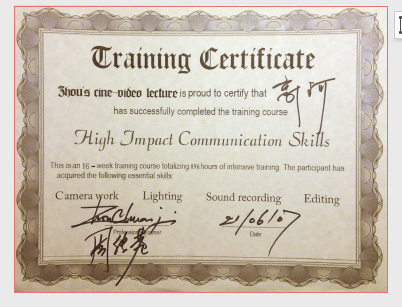 Training Certificate
Zhou's cine-video lecture is proud to certify that
has successfully completed the training course
High Impact Communication Skills
This is an 16 - week training course totalizing 896 hours of intensive training. The participant has
acquired the following essential skills
Camera work Lighting Sound recording Editing
21/06/07
Date